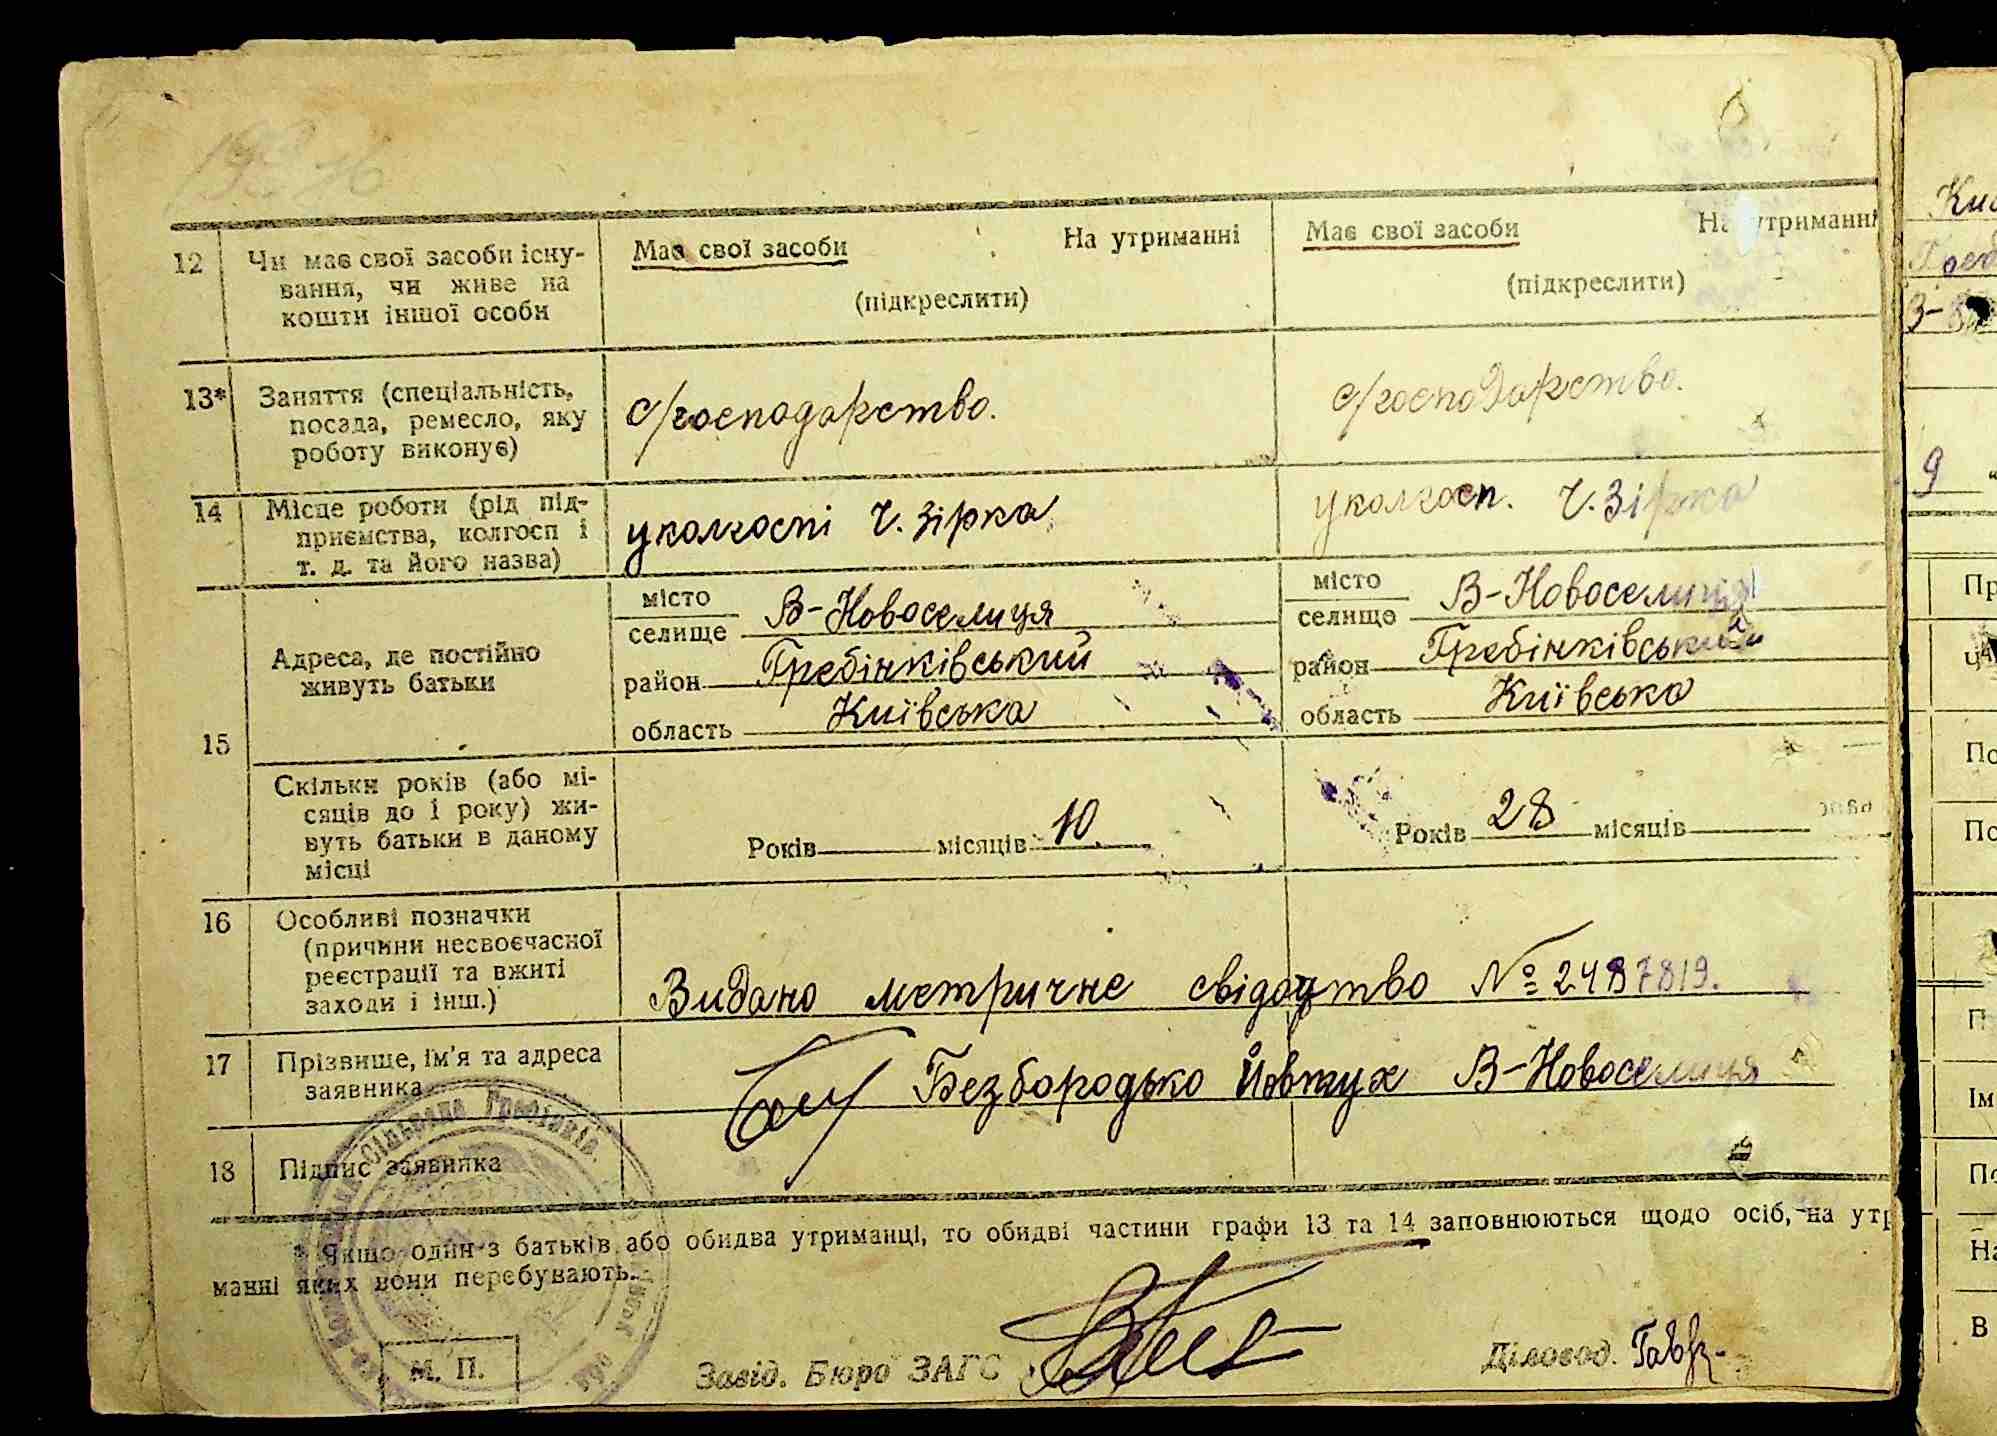 12 Чи має свої засоби існу-
вання, чи живе на
кошти іншої особи
Має свої засоби На утриманні
(підкреслити)
Має свої засоби На утриманні
(підкреслити)
13* Заняття (спеціальність,
посада, ремесло, яку
роботу виконує)
с/господарство.
с/господарство.
14 Місце роботи (рід під-
приємства, колгосп і
т. д. та його назва)
у колгоспі Ч. Зірка
у колгосп. Ч. Зірка
15
Адреса, де постійно
живуть батьки
місто
селище В-Новоселиця
район Гребінківський
область Київська
місто
селище В-Новоселиця
район Гребінківський
область Київська
Скільки років (або мі-
сяців до 1 року) жи-
вуть батьки в даному
місці
Років місяців 10.
Років 28 місяців
16 Особливі позначки
(причини несвоєчасної
реєстрації та вжиті
заходи і інш.)
Видано метричне свідоцтво № 2487819.
17 Прізвище, ім'я та адреса
заявника
Безбородько Йовтух В-Новоселиця
18 Підпис заявника
* Якщо один з батьків або обидва утриманці, то обидві частини графи 13 та 14 заповнюються щодо осіб, на утр
манні яких вони перебувають.
М. П.
Завід. Бюро ЗАГС
Діловод.